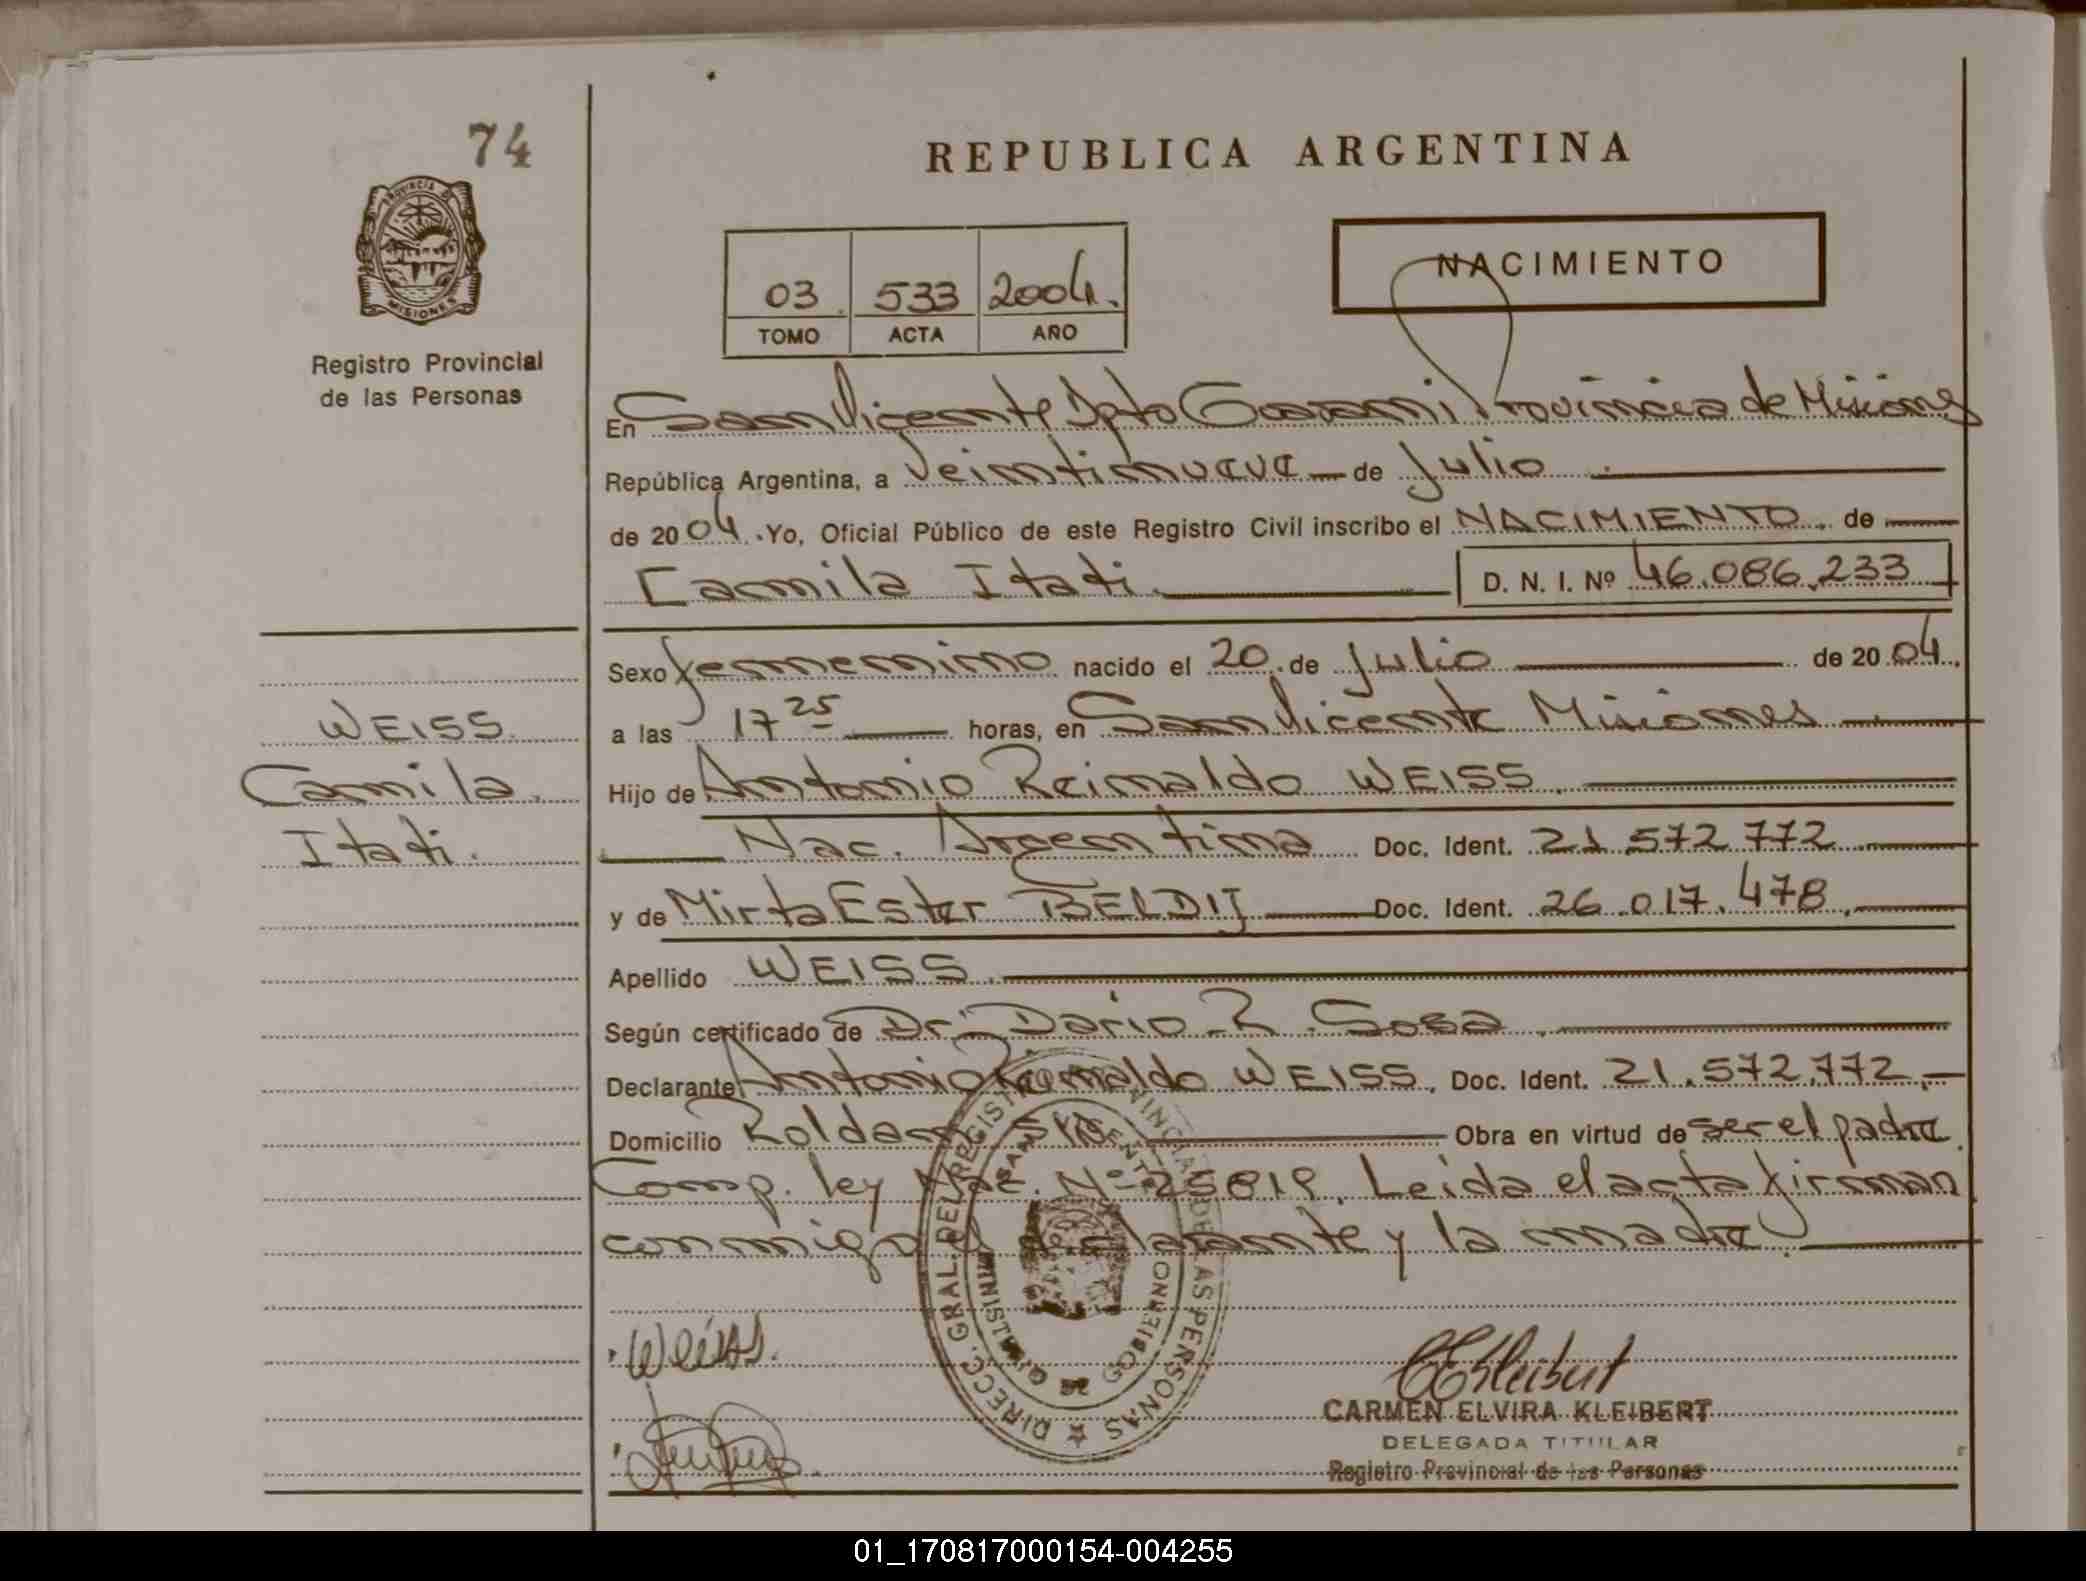 74
REPUBLICA ARGENTINA
PROVINCIA DE
MISIONES
Registro Provincial
de las Personas
03 533 2004.
TOMO ACTA AÑO
NACIMIENTO
En San Vicente Dpto Guarani Provincia de Misiones
República Argentina, a veintinueve de Julio
de 2004. Yo, Oficial Público de este Registro Civil inscribo el NACIMIENTO de
Camila Itati. D. N. I. Nº 46.086.233
Sexo femenino nacido el 20 de Julio de 2004.
WEISS
a las 17 25 horas, en San Vicente Misiones
Camila
Hijo de Antonio Reinaldo WEISS.
Itati.
Nac. Argentina Doc. Ident. 21 572 772
y de Mirta Ester BELDIJ Doc. Ident. 26.017.478.
Apellido WEISS.
Según certificado de Dr. Dario R. Sosa
Declarante Antonio Reinaldo WEISS. Doc. Ident. 21.572.772.
Domicilio Roldan S. Vte. Obra en virtud de ser el padre.
Comp. ley Nac. Nº 25819. Leida el acta firman
conmigo el declarante y la madre.
DIRECC. GRAL. DEL REGISTRO PROVINCIAL DE LAS PERSONAS
SAN VICENTE
MINISTERIO DE GOBIERNO
Weiss.
CARMEN ELVIRA KLEIBERT
DELEGADA TITULAR
Registro Provincial de las Personas
01_170817000154-004255